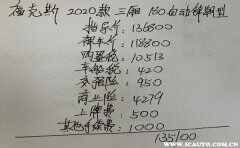 福克斯 2020款 三厢 180自动锋潮型
指导价: 136800
裸车价: 118800
购置税: 10513
车船税: 420
交强险: 950
商业险: 4279
上牌费: 500
其他手续费: 1000
135100
WWW.5CAUTO.COM